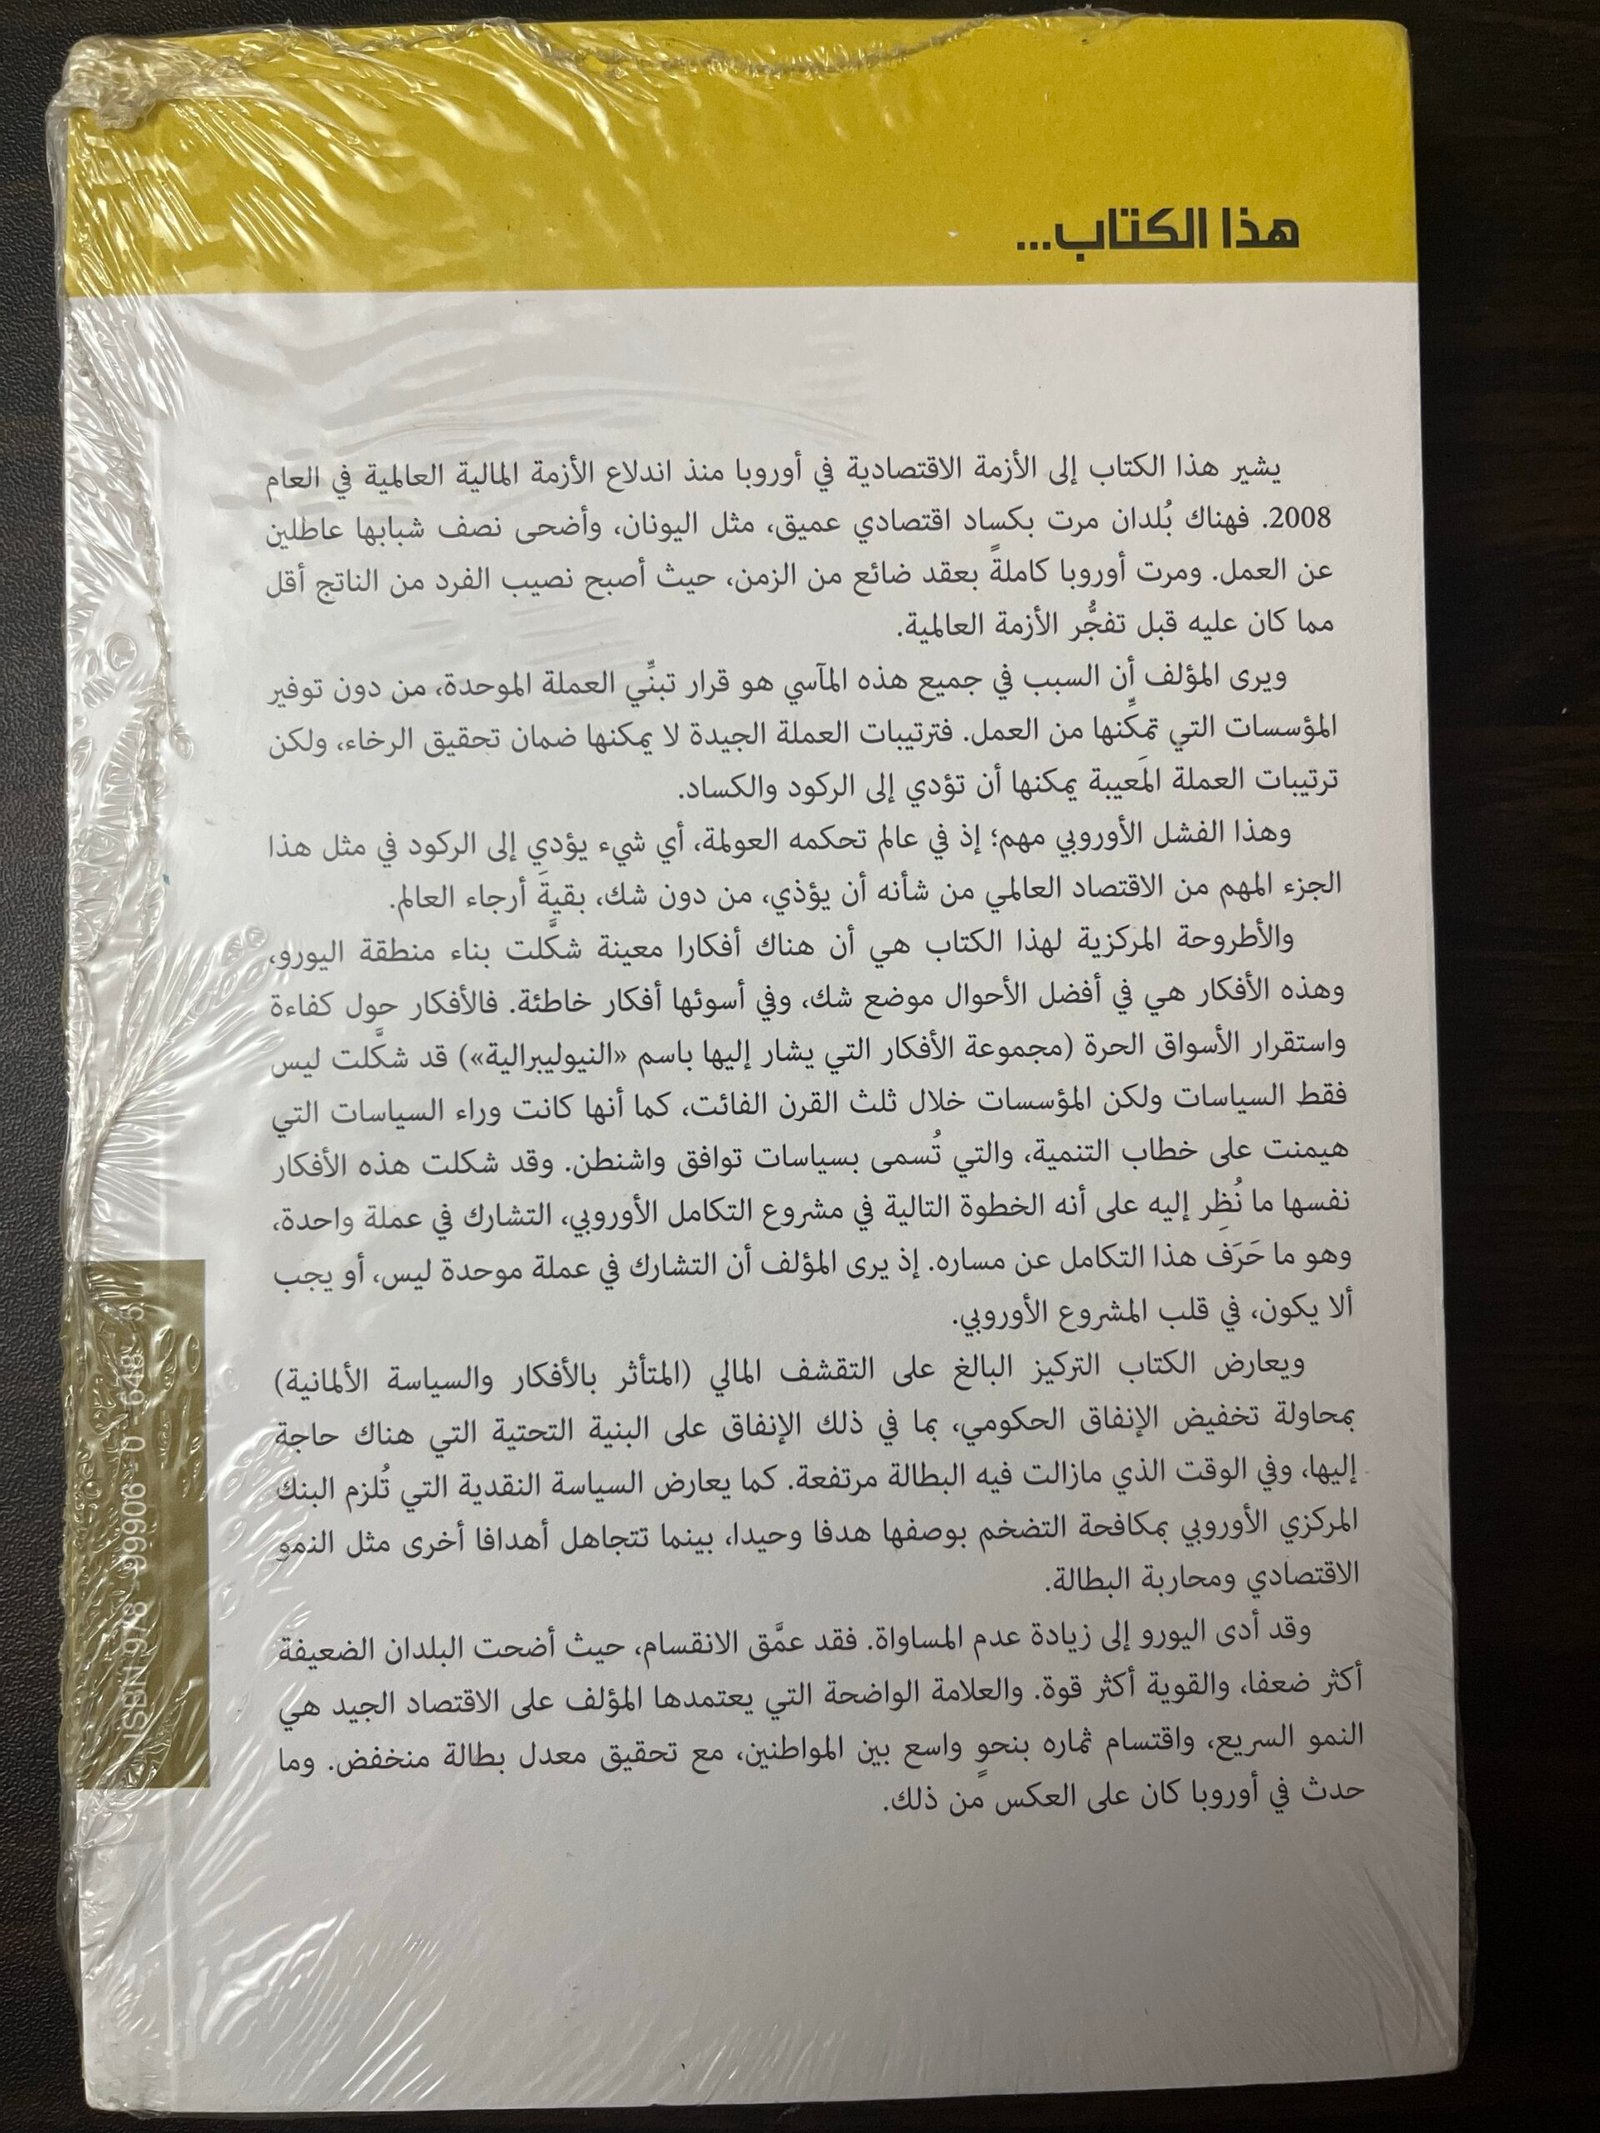 هذا الكتاب...
يشير هذا الكتاب إلى الأزمة الاقتصادية في أوروبا منذ اندلاع الأزمة المالية العالمية في العام
2008. فهناك بُلدان مرت بكساد اقتصادي عميق، مثل اليونان، وأضحى نصف شبابها عاطلين
عن العمل. ومرت أوروبا كاملةً بعقد ضائع من الزمن، حيث أصبح نصيب الفرد من الناتج أقل
مما كان عليه قبل تفجُّر الأزمة العالمية.
ويرى المؤلف أن السبب في جميع هذه المآسي هو قرار تبنِّي العملة الموحدة، من دون توفير
المؤسسات التي تمكِّنها من العمل. فترتيبات العملة الجيدة لا يمكنها ضمان تحقيق الرخاء، ولكن
ترتيبات العملة المَعيبة يمكنها أن تؤدي إلى الركود والكساد.
وهذا الفشل الأوروبي مهم؛ إذ في عالم تحكمه العولمة، أي شيء يؤدي إلى الركود في مثل هذا
الجزء المهم من الاقتصاد العالمي من شأنه أن يؤذي، من دون شك، بقيةَ أرجاء العالم.
والأطروحة المركزية لهذا الكتاب هي أن هناك أفكارا معينة شكَّلت بناء منطقة اليورو،
وهذه الأفكار هي في أفضل الأحوال موضع شك، وفي أسوئها أفكار خاطئة. فالأفكار حول كفاءة
واستقرار الأسواق الحرة (مجموعة الأفكار التي يشار إليها باسم «النيوليبرالية») قد شكَّلت ليس
فقط السياسات ولكن المؤسسات خلال ثلث القرن الفائت، كما أنها كانت وراء السياسات التي
هيمنت على خطاب التنمية، والتي تُسمى بسياسات توافق واشنطن. وقد شكلت هذه الأفكار
نفسها ما نُظِر إليه على أنه الخطوة التالية في مشروع التكامل الأوروبي، التشارك في عملة واحدة،
وهو ما حَرَف هذا التكامل عن مساره. إذ يرى المؤلف أن التشارك في عملة موحدة ليس، أو يجب
ألا يكون، في قلب المشروع الأوروبي.
ويعارض الكتاب التركيز البالغ على التقشف المالي (المتأثر بالأفكار والسياسة الألمانية)
بمحاولة تخفيض الإنفاق الحكومي، بما في ذلك الإنفاق على البنية التحتية التي هناك حاجة
إليها، وفي الوقت الذي مازالت فيه البطالة مرتفعة. كما يعارض السياسة النقدية التي تُلزم البنك
المركزي الأوروبي بمكافحة التضخم بوصفها هدفا وحيدا، بينما تتجاهل أهدافا أخرى مثل النمو
الاقتصادي ومحاربة البطالة.
وقد أدى اليورو إلى زيادة عدم المساواة. فقد عمَّق الانقسام، حيث أضحت البلدان الضعيفة
أكثر ضعفا، والقوية أكثر قوة. والعلامة الواضحة التي يعتمدها المؤلف على الاقتصاد الجيد هي
النمو السريع، واقتسام ثماره بنحوٍ واسع بين المواطنين، مع تحقيق معدل بطالة منخفض. وما
حدث في أوروبا كان على العكس من ذلك.
ISBN 978 - 99906 - 0 - 648 -